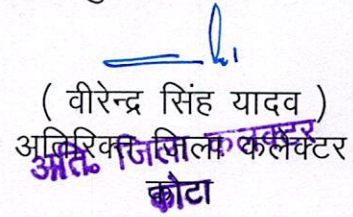 ( वीरेन्द्र सिंह यादव )
अतिरिक्त जिला कलेक्टर
अति. जिला कलक्टर
कोटा